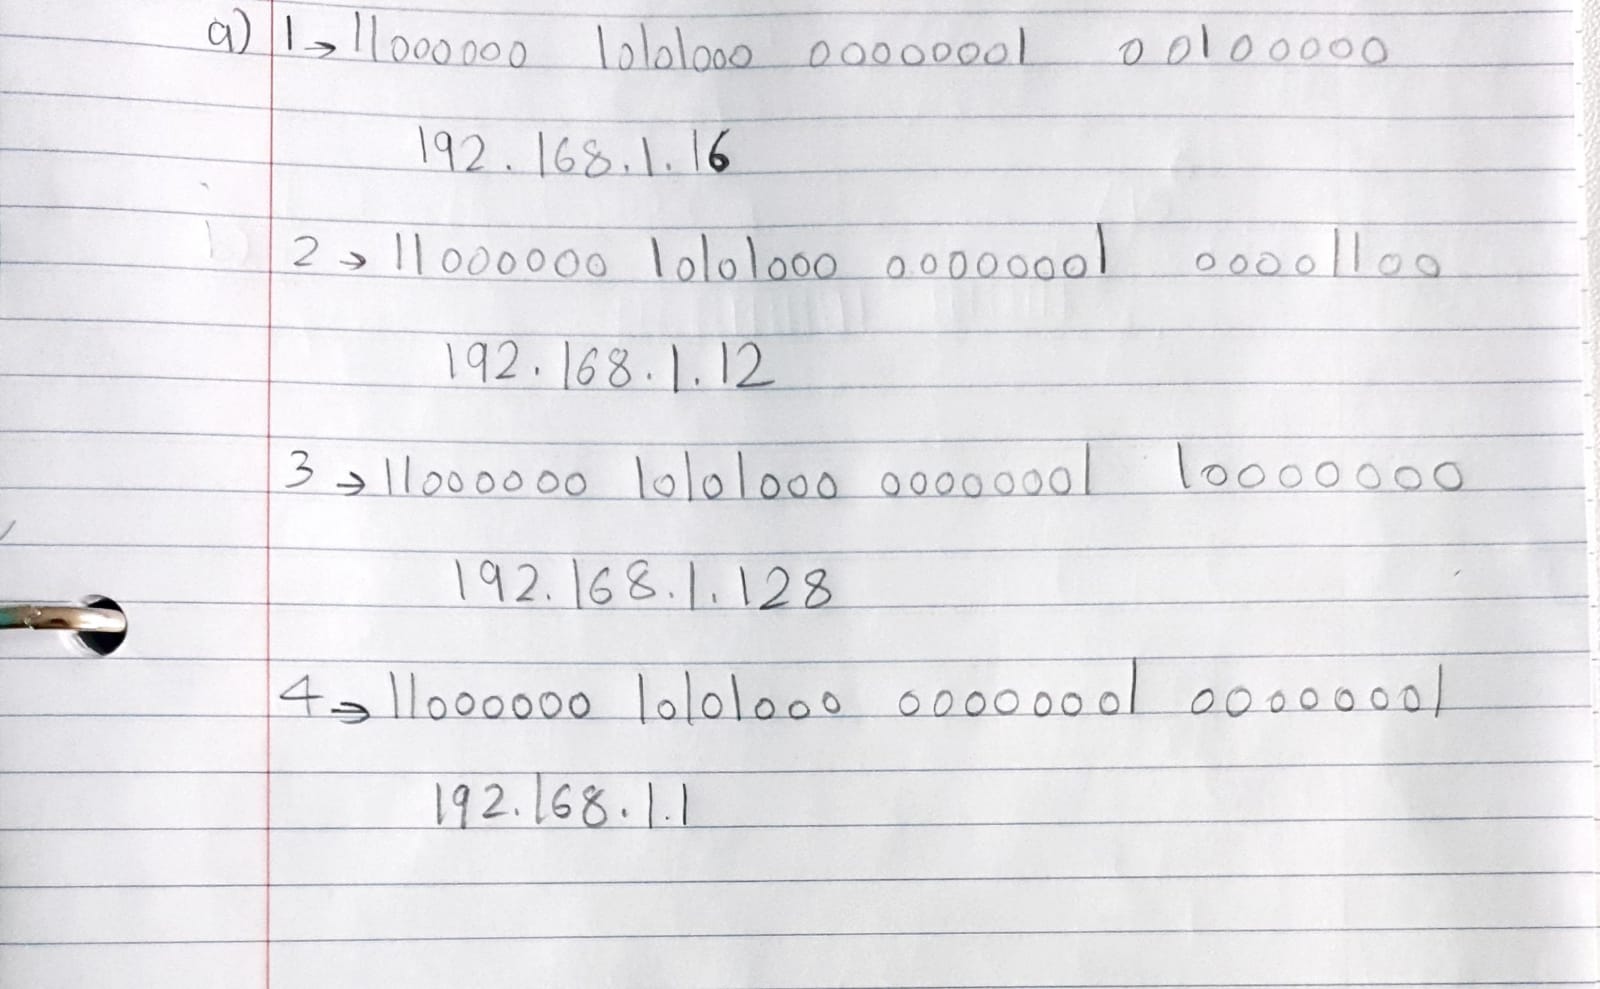 a) 1→ 11000000 10101000 00000001 00100000
192.168.1.16
2→ 11000000 10101000 00000001 00001100
192.168.1.12
3→ 11000000 10101000 00000001 10000000
192.168.1.128
4→ 11000000 10101000 00000001 00000001
192.168.1.1